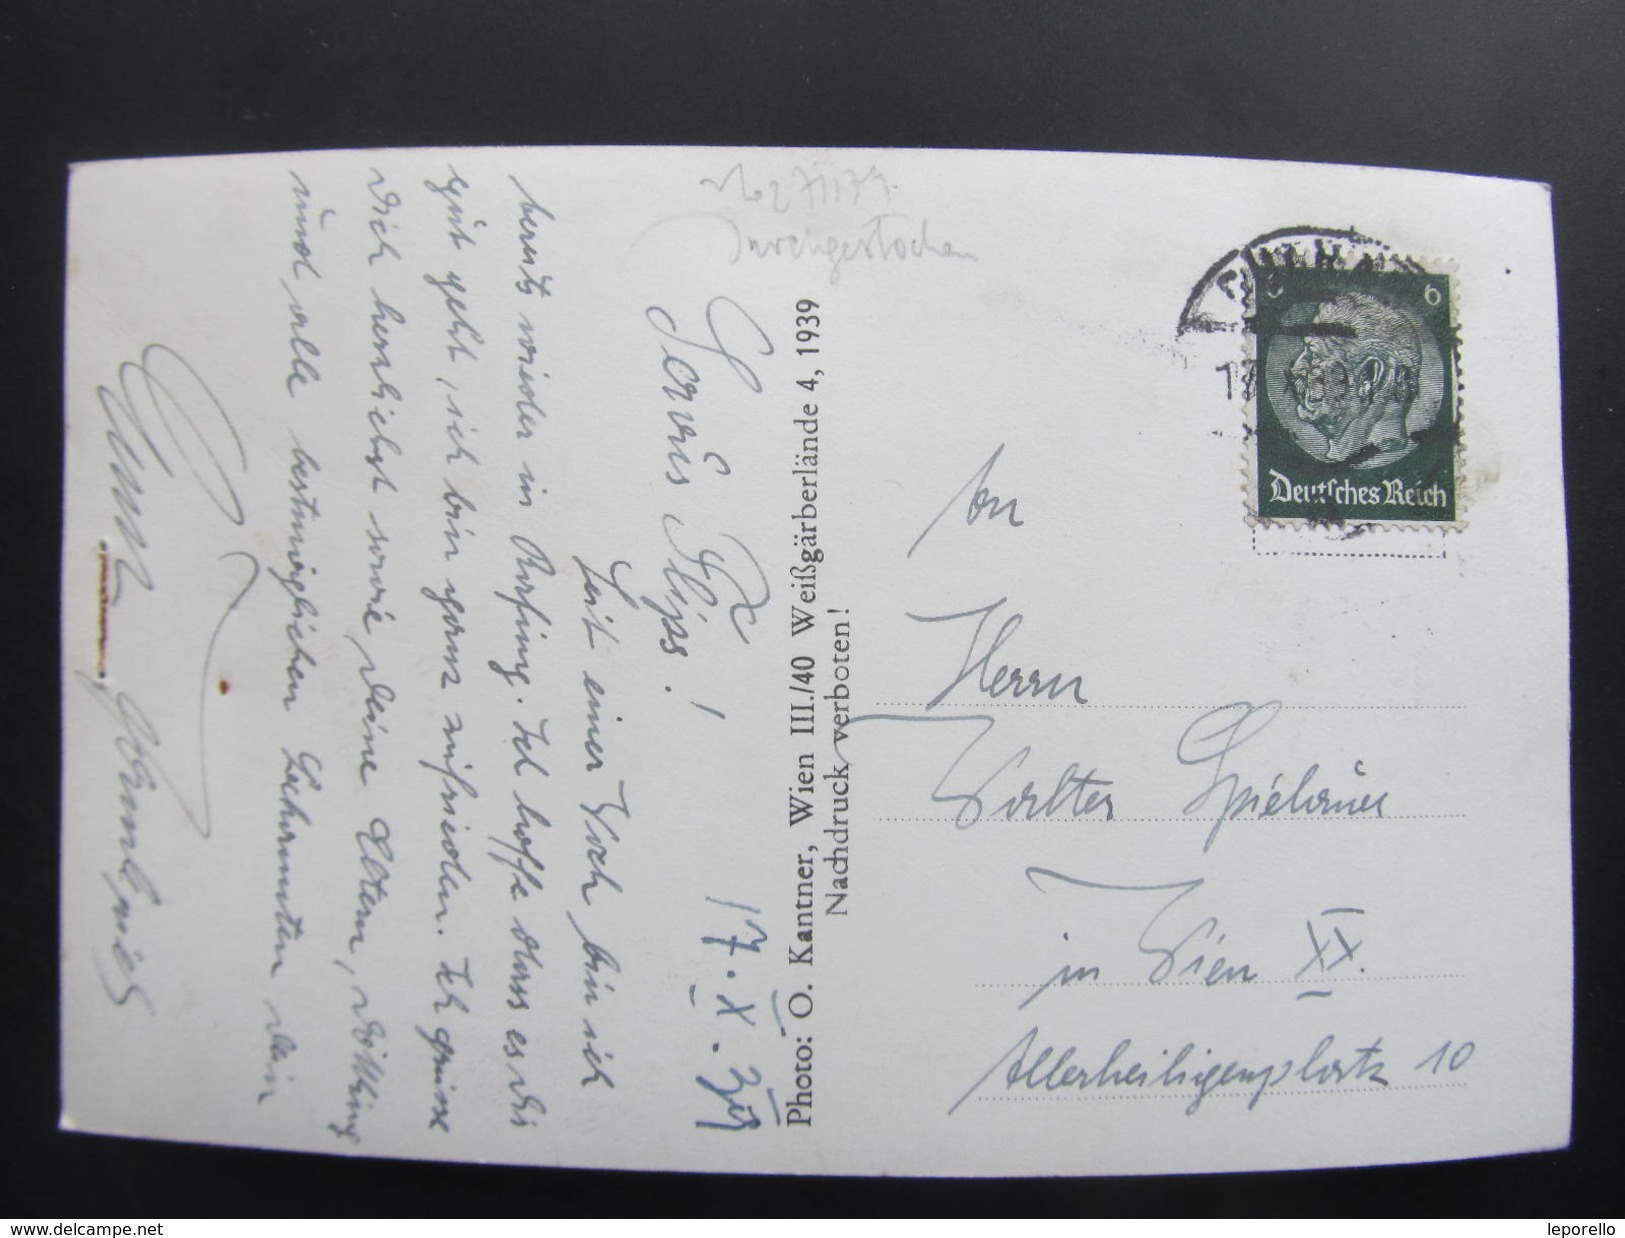 17. X. 39
Servus Flips!
Seit einer Woch bin ich
bereits wieder in Rafing. Ich hoffe dass es dir
gut geht, ich bin ganz zufrieden. Ich grüsse
dich herzlichst sowie deine Eltern,
und alle bestmöglichen Bekannten dein
Photo: O. Kantner, Wien III./40 Weißgärberlände 4, 1939
Nachdruck verboten!
durchgestochen
6
Deutsches Reich
An
Herrn
Walter Spielauer
in Wien XX.
Allerheiligenplatz 10
www.delcampe.net
leporello